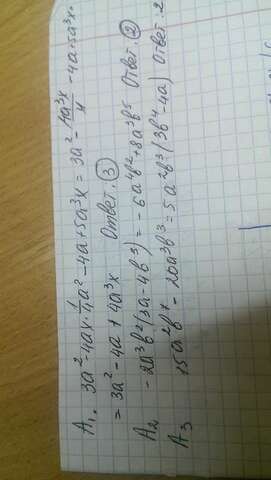 A1. 3a²-4ax·1/4a²-4a+5a³x = 3a² - 4a³x/4 -4a+5a³x=
= 3a²-4a+4a³x Ответ: ③
A2 -2a³b²(3a-4b³) = -6a⁴b²+8a³b⁵ Ответ: ②
A3 15a²b⁷-20a³b³ = 5a²b³(3b⁴-4a) Ответ: 2